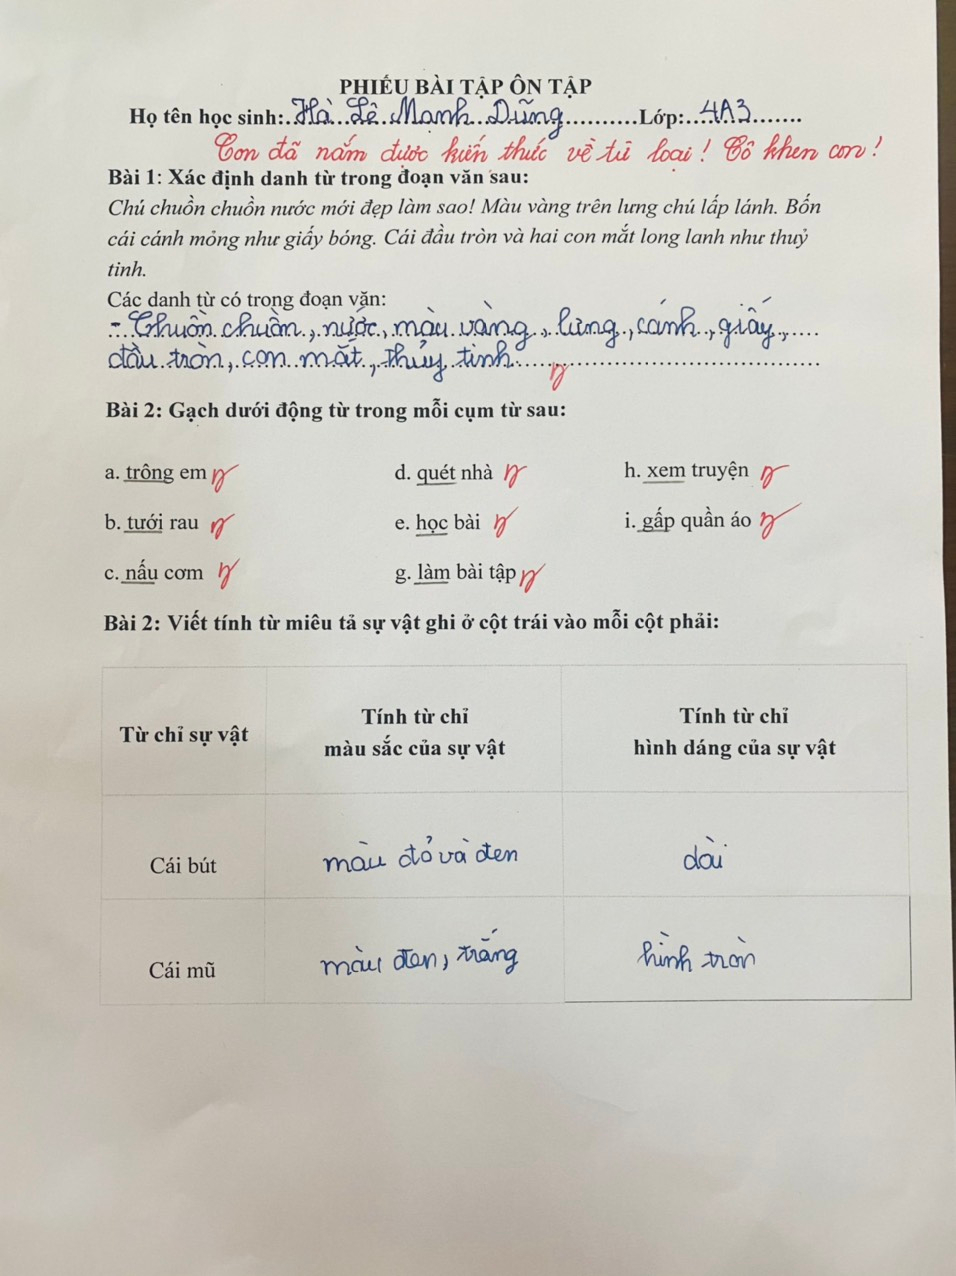 PHIẾU BÀI TẬP ÔN TẬP
Họ tên học sinh:..Hà..Lê..Mạnh..Dũng...........Lớp:...4A3.......
Con đã nắm được kiến thức về từ loại! Cô khen con!
Bài 1: Xác định danh từ trong đoạn văn sau:
Chú chuồn chuồn nước mới đẹp làm sao! Màu vàng trên lưng chú lấp lánh. Bốn
cái cánh mỏng như giấy bóng. Cái đầu tròn và hai con mắt long lanh như thuỷ
tinh.
Các danh từ có trong đoạn văn:
- Chuồn chuồn, nước, màu vàng, lưng, cánh, giấy,
đầu tròn, con mắt, thủy tinh.
Bài 2: Gạch dưới động từ trong mỗi cụm từ sau:
a. trông em d. quét nhà h. xem truyện
b. tưới rau e. học bài i. gấp quần áo
c. nấu cơm g. làm bài tập
Bài 2: Viết tính từ miêu tả sự vật ghi ở cột trái vào mỗi cột phải:
Từ chỉ sự vật
Tính từ chỉ
màu sắc của sự vật
Tính từ chỉ
hình dáng của sự vật
Cái bút màu đỏ và đen dài
Cái mũ màu đen, trắng hình tròn